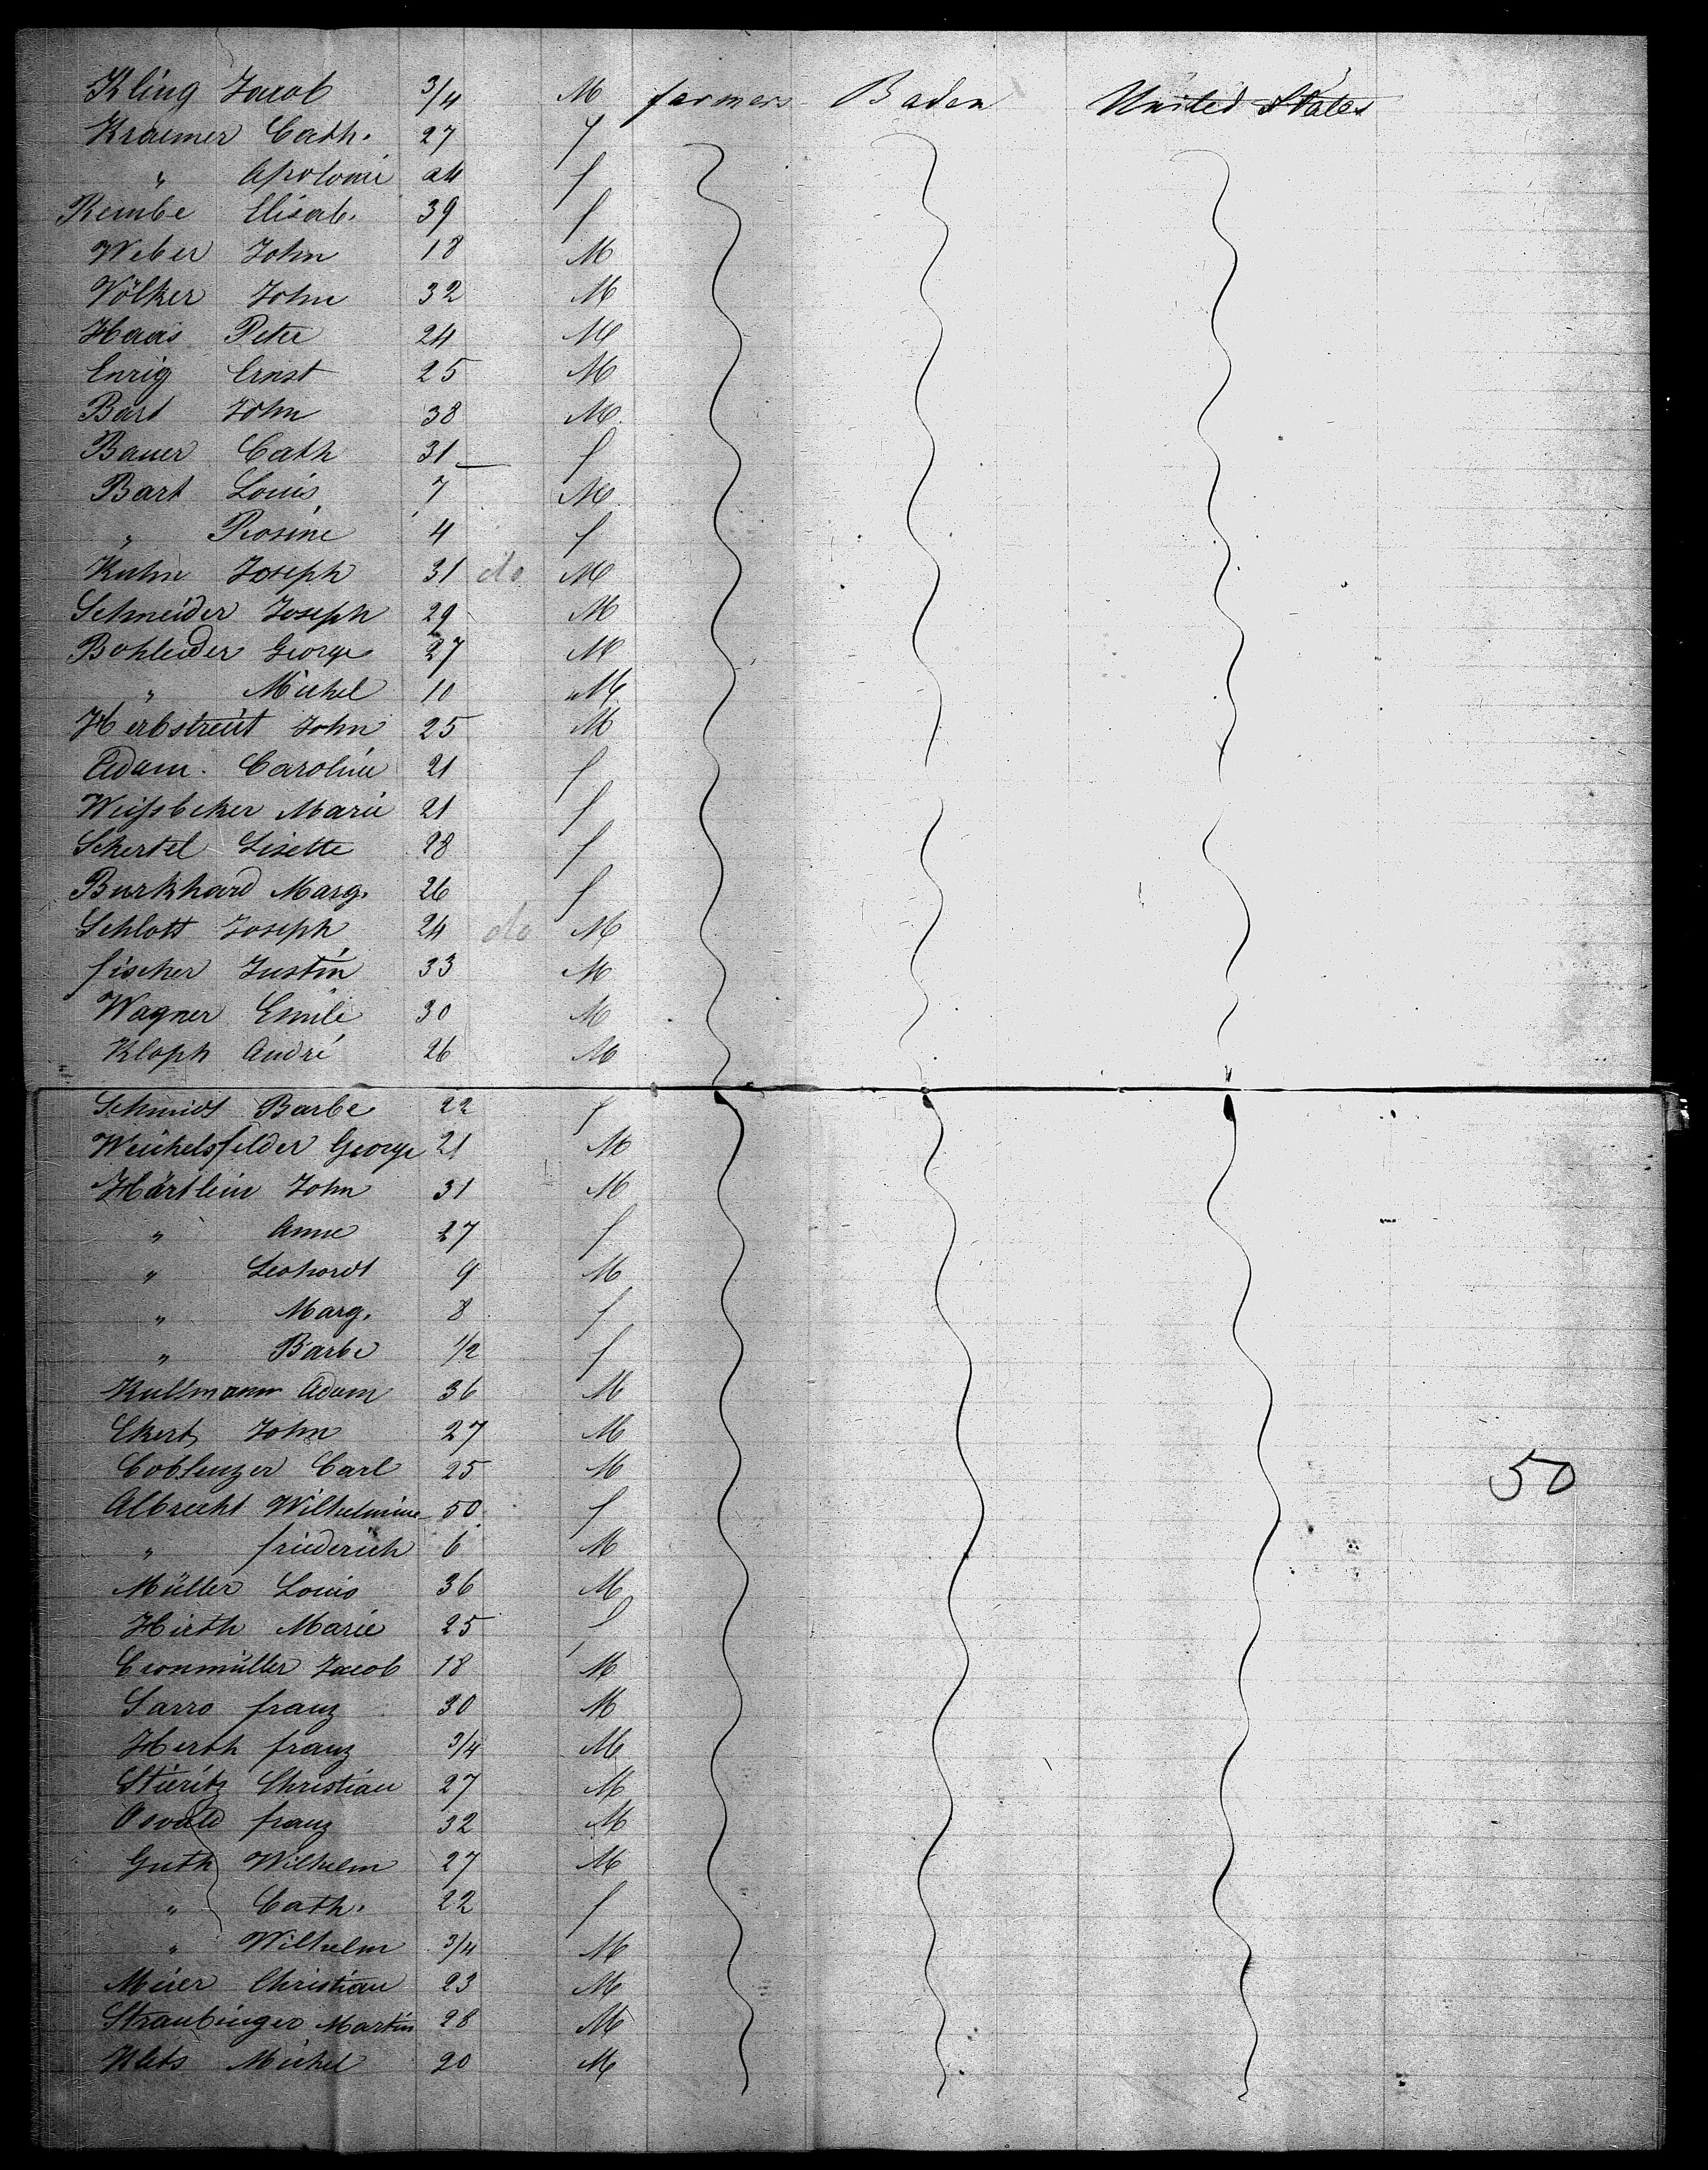 Kling Jacob 3/4 M farmers Baden United States
Kraemer Cath. 27 f
" Apolonie 24 f
Rembe Elisab. 39 f
Weber John 18 M
Völker John 32 M
Haas Peter 24 M
Enrig Ernst 25 M
Bart John 38 M
Bauer Cath 31 f
Bart Louis 7 M
" Rosine 4 f
Kuhn Joseph 31 do M
Schneider Joseph 29 M
Bohleider George 27 M
" Michel 10 M
Herbstreut John 25 M
Adam. Caroline 21 f
Weissbeker Marie 21 f
Schertel Lisette 28 f
Burkhard Marg. 26 f
Schlott Joseph 24 do M
fischer Justin 33 M
Wagner Emile 30 M
Kloph André 26 M
Schmidt Barbe 22 f
Weichelsfelder George 21 M
Härtlein John 31 M
" Anne 27 f
" Leohardt 9 M
" Marg. 8 f
" Barbe 1/2 f
Kullmann Adam 36 M
Ekert John 27 M
Coblenzer Carl 25 M
50
Albrecht Wilhelmine 50 f
" friederich 6 M
Müller Louis 36 M
Hirth Marie 25 f
Cronmüller Jacob 18 M
Sarro franz 30 M
Herth franz 3/4 M
Stieritz Christian 27 M
Osvald franz 32 M
Guth Wilhelm 27 M
" Cath. 22 f
" Wilhelm 3/4 M
Meier Christian 23 M
Straubinger Martin 28 M
Klets Michel 20 M